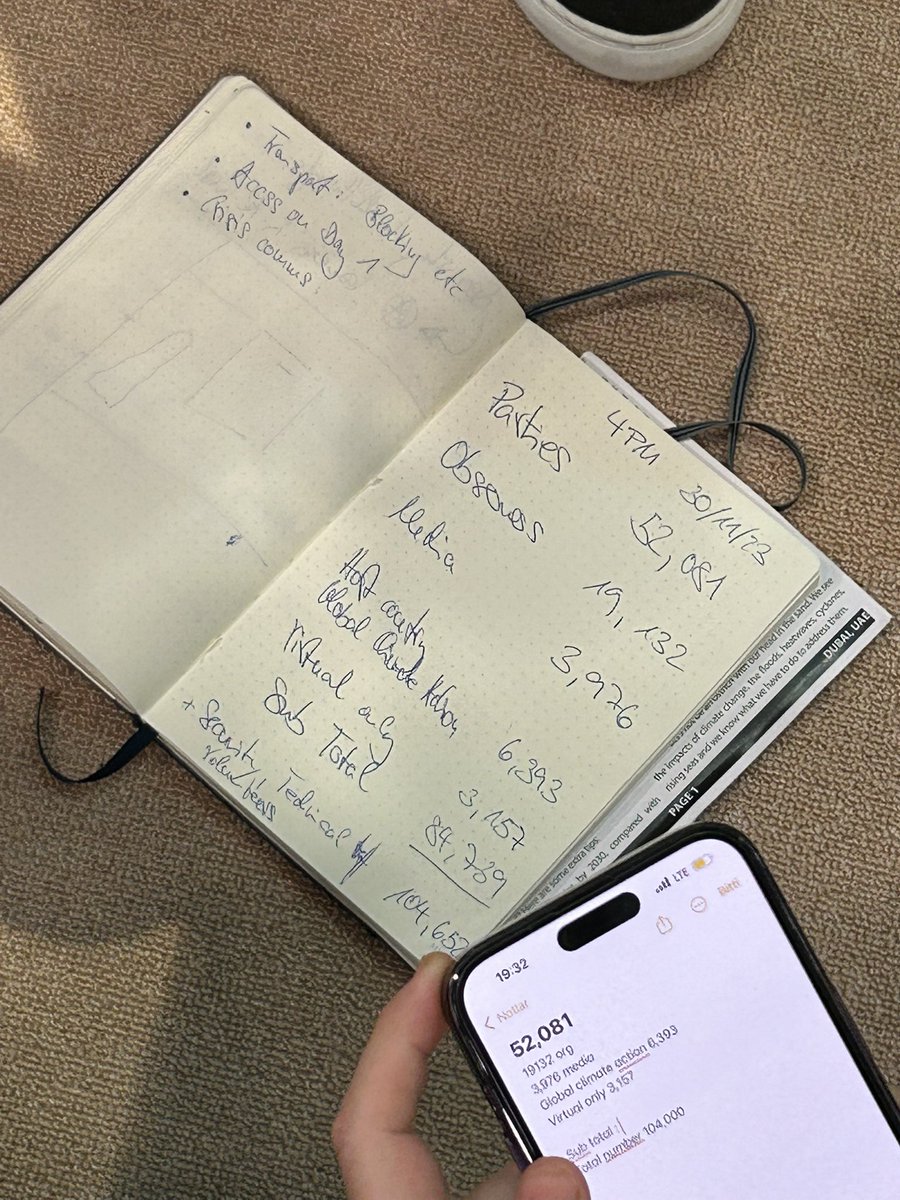 • Transport: Blocking etc
• Access on Day 1
• Crisis comms.
4PM 30/11/23
Parties 52,081
Observers 19,132
Media 3,976
Host country
Global Climate Action 6,393
Virtual only 3,157
Sub Total 84,739
+ Security, Technical
Volunteers 104,652
the impacts of climate change, the floods, heatwaves, cyclones,
rising seas and we know what we have to do to address them.
PAGE 1 DUBAI, UAE
some extra tips.
by 2030, compared with
19:32 LTE
Notlar Bitti
52,081
19132 org
3,976 media
Global climate action 6,393
Virtual only 3,157
Sub total :
total number 104,000